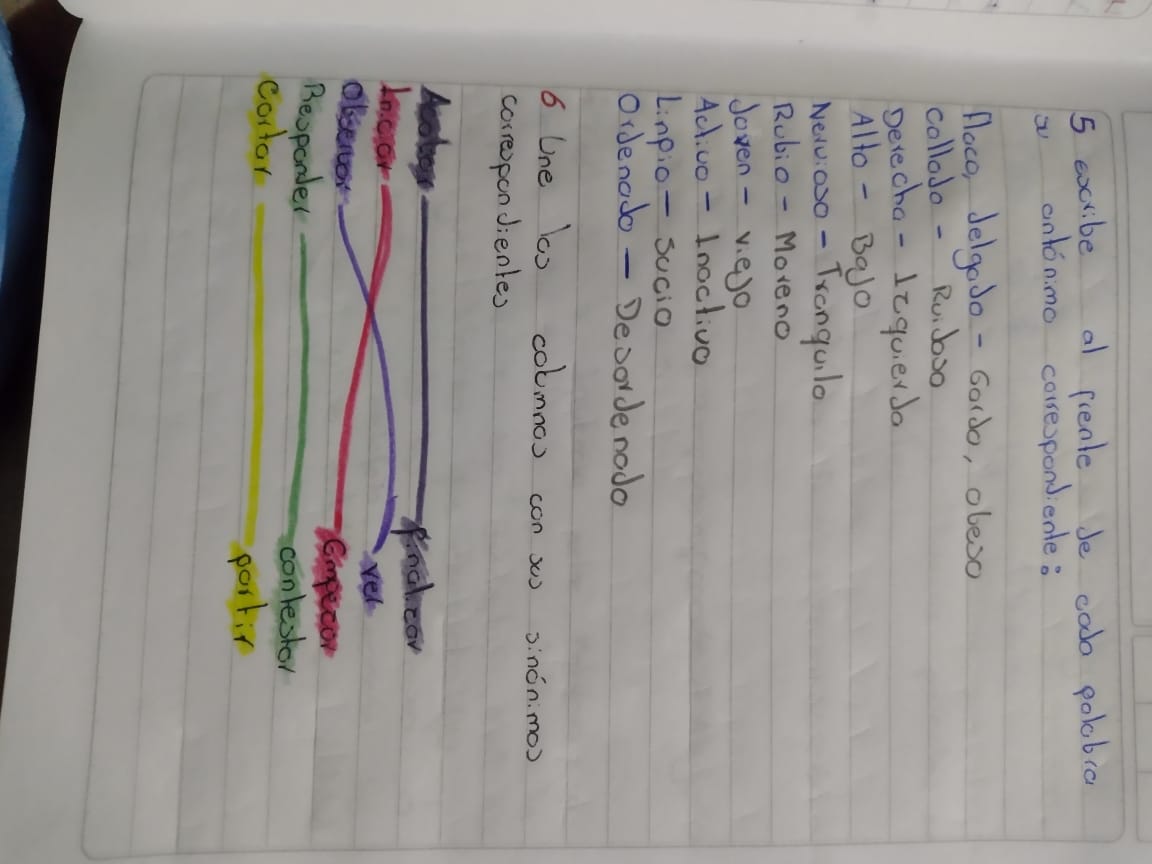 5 escribe al frente de cada palabra
su antónimo correspondiente:
flaco, delgado - Gordo, obeso
Callado - Ruidoso
Derecha - Izquierda
Alto - Bajo
Nervioso - Tranquilo
Rubio - Moreno
Joven - viejo
Activo - Inactivo
Linpio - Sucio
Ordenado - Desordenado
6 Une las columnas con sus sinónimos
correspondientes
Acabar finalizar
Iniciar ver
Observar Empezar
Responder contestar
Cortar partir